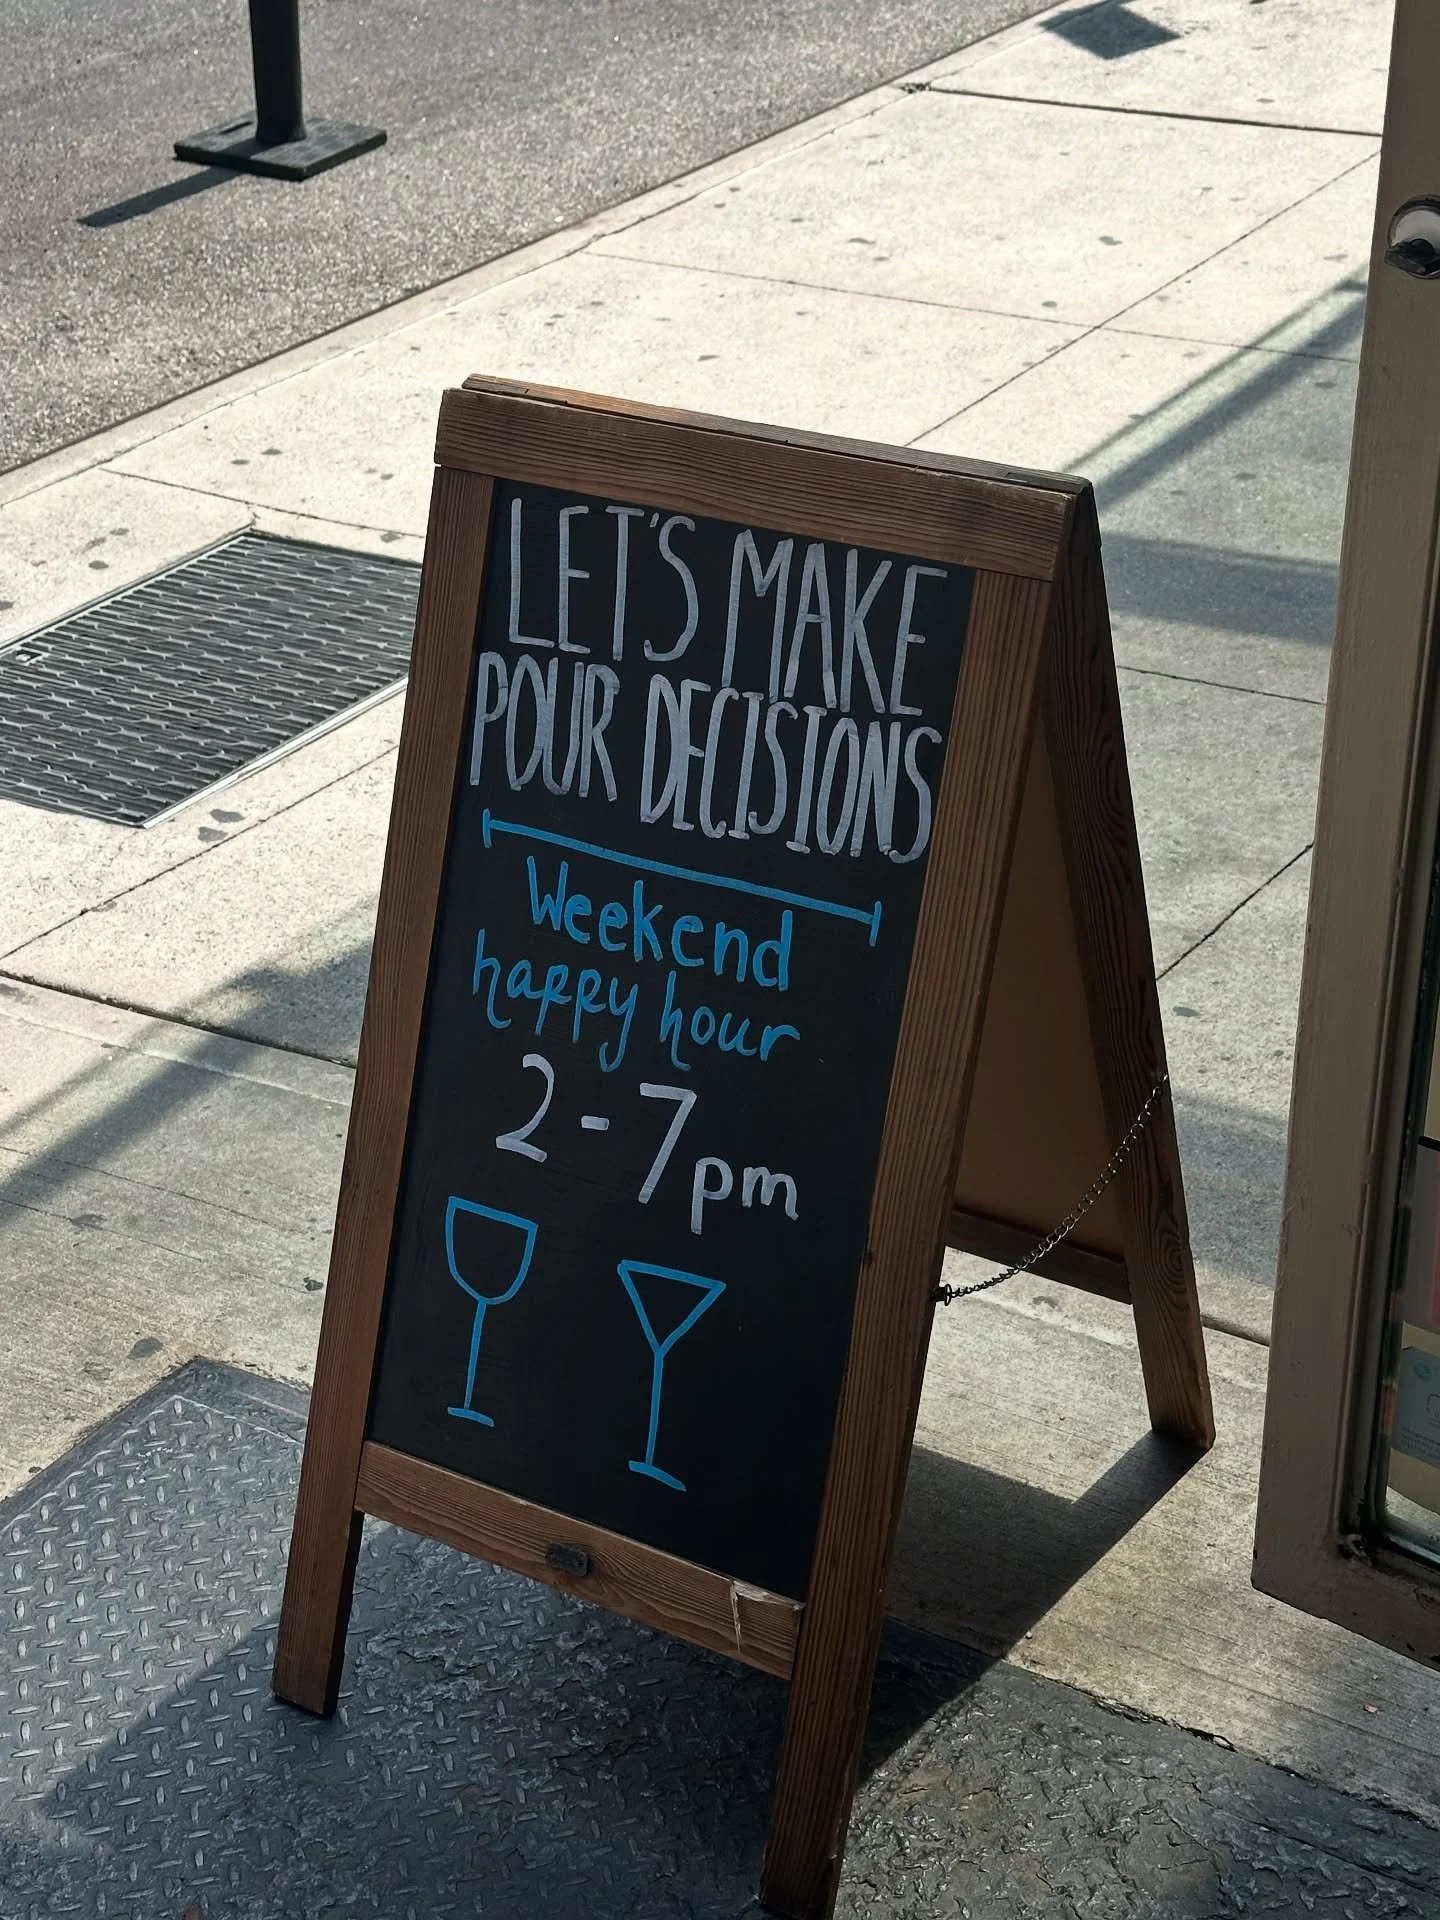 LET'S MAKE
POUR DECISIONS
Weekend
happy hour
2-7pm